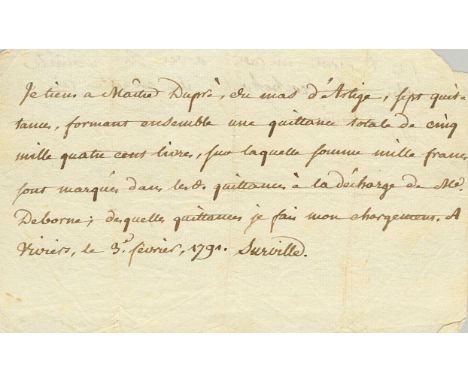 Je tiens a Maitre Dupré, du mas d'Artige, sept quit-
tances, formant ensemble une quittance totale de cinq
mille quatre cent livres, sur laquelle somme mille francs
sont marqués dans les quittances à la décharge de
Deborne; desquelles quittances je fais mon chargement. A
Viviers, le 3. février, 1791. Surville.